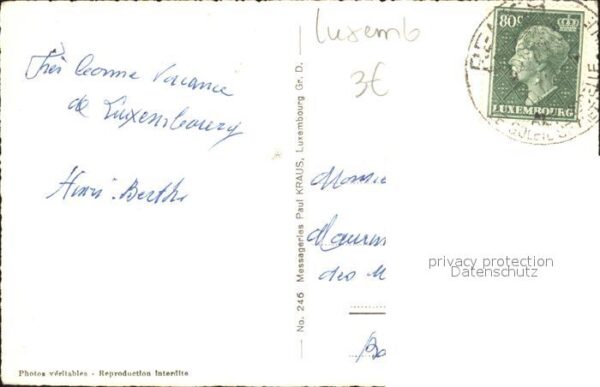 Très bonne Vacance
de Luxembourg
Henri. Berthe
Photos véritables - Reproduction interdite
No. 246 Messageries Paul KRAUS, Luxembourg Gr. D.
Luxemb
3€
80c
LUXEMBOURG
des M
privacy protection
Datenschutz